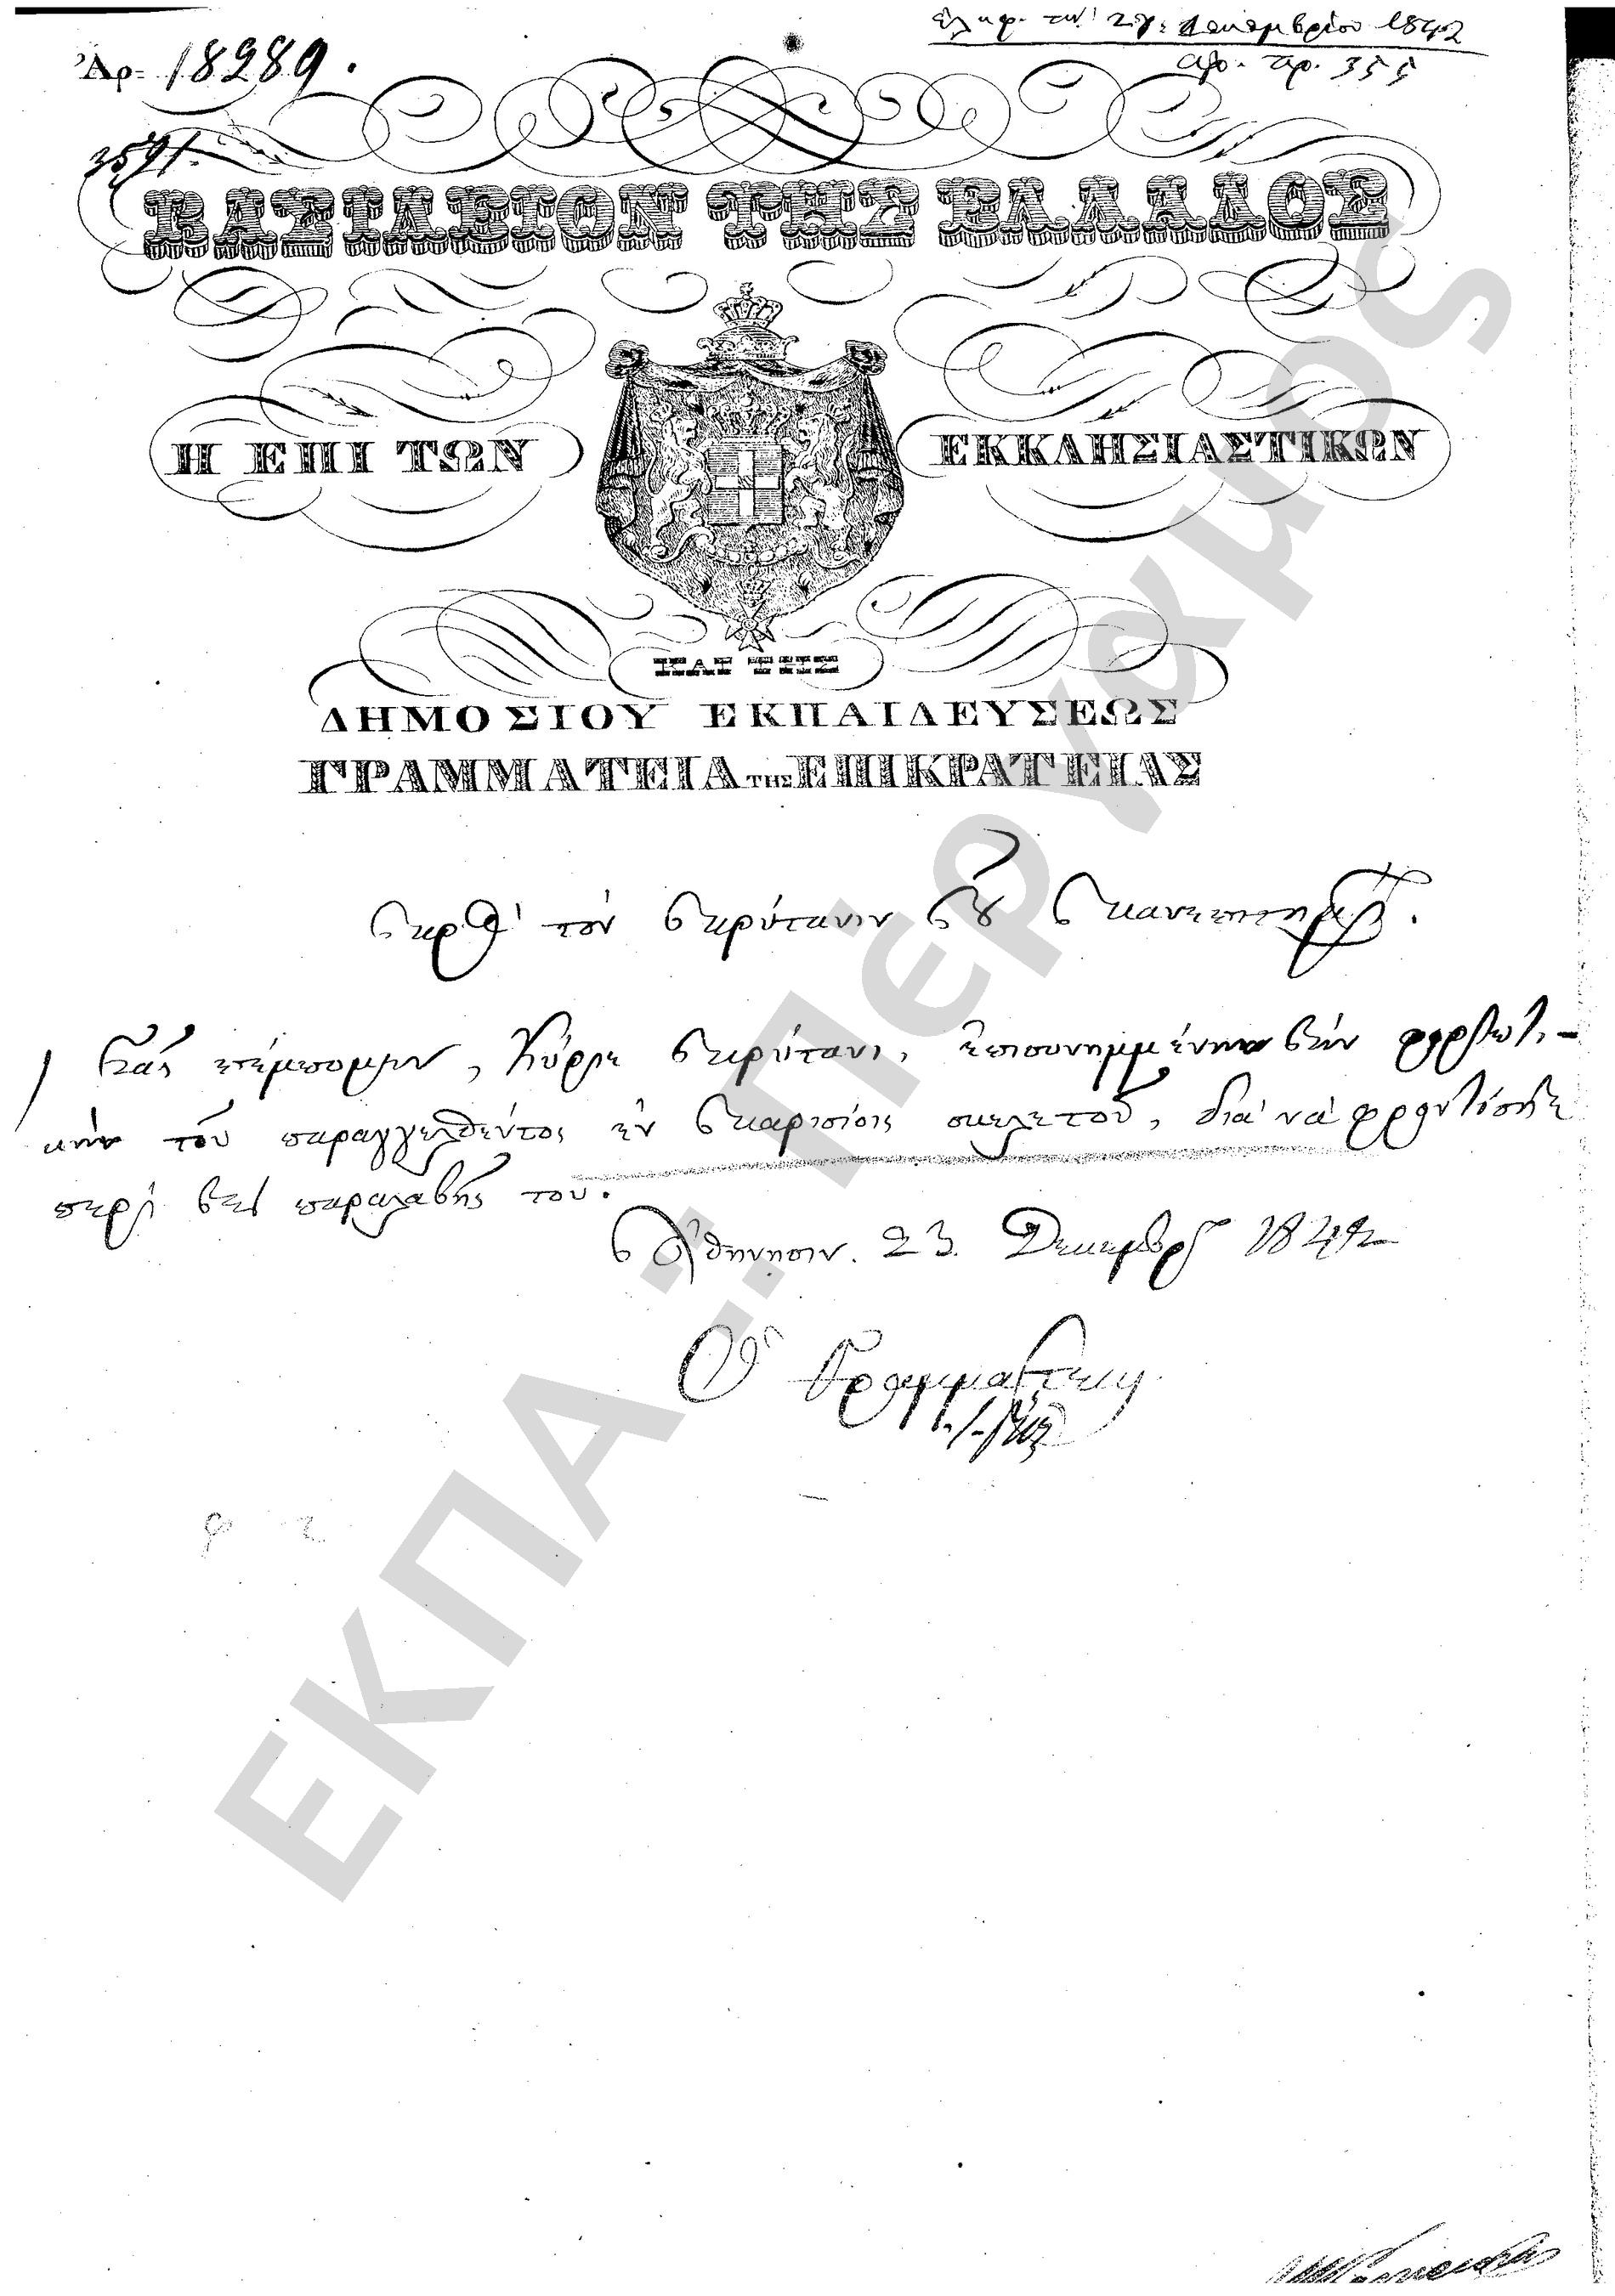 Ἀρ. 18289.
ἐλήφ. τὴν 27. Δεκεμβρίου 1842
ἀρ. πρ. 355
3591.
ΒΑΣΙΛΕΙΟΝ ΤΗΣ ΕΛΛΑΔΟΣ
Η ΕΠΙ ΤΩΝ ΕΚΚΛΗΣΙΑΣΤΙΚΩΝ
ΚΑΙ ΤΗΣ
ΔΗΜΟΣΙΟΥ ΕΚΠΑΙΔΕΥΣΕΩΣ
ΓΡΑΜΜΑΤΕΙΑ ΤΗΣ ΕΠΙΚΡΑΤΕΙΑΣ
Πρὸς τὸν Πρύτανιν τοῦ Πανεπιστημίου.
Σᾶς πέμπομεν, Κύριε Πρύτανι, ἐπισυνημμένην τὴν φορτωτι-
κὴν τοῦ παραγγελθέντος ἐν Παρισίοις σκελετοῦ, διὰ νὰ φροντίσητε
περὶ τῆς παραλαβῆς του.
Ἀθήνησιν. 23. Δεκεμβρ 1842
Ὁ Γραμματεὺς
ΕΚΠΑ.. Πέργαμος